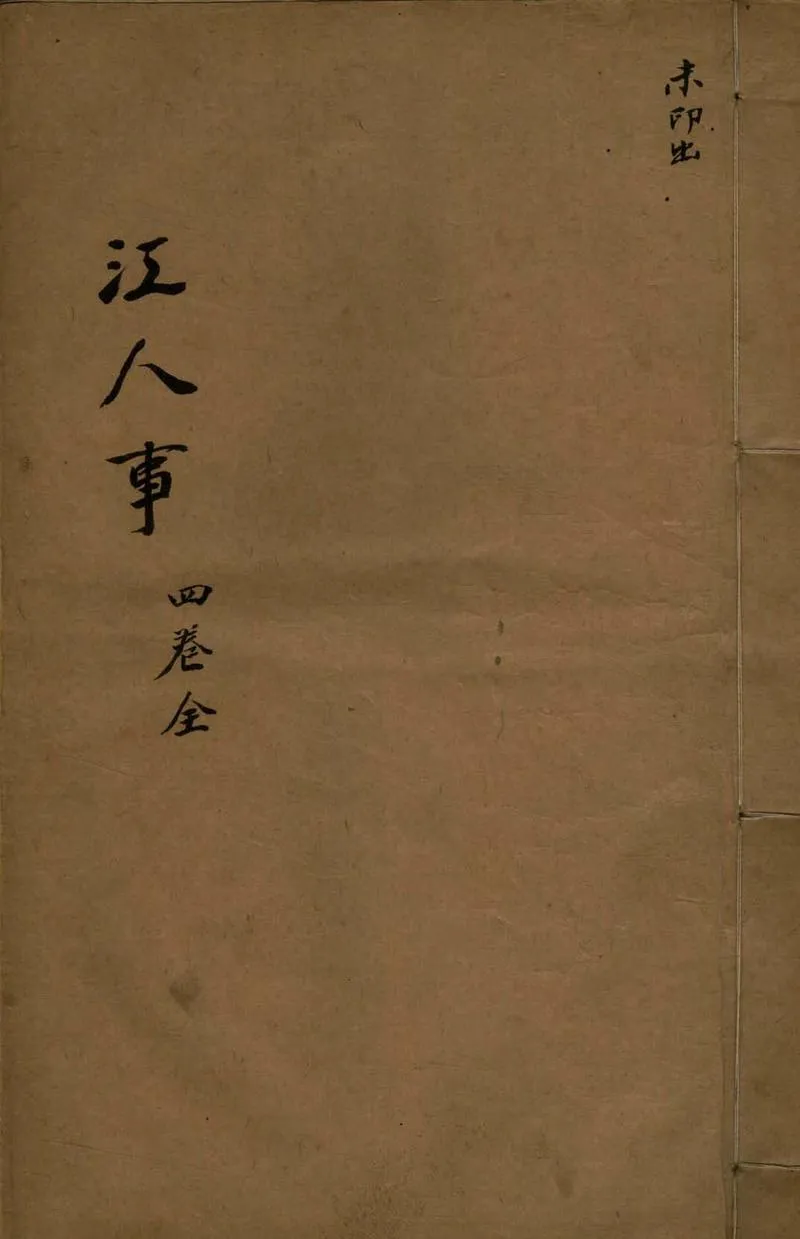 未印出
江人事
四卷全